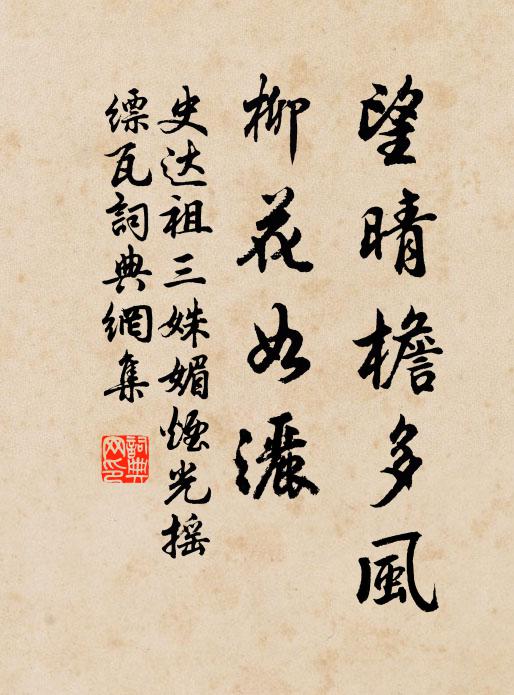 望晴檐多風
柳花如灑
史达祖三姝媚煙光摇
缥瓦詞典網集
詞典网印